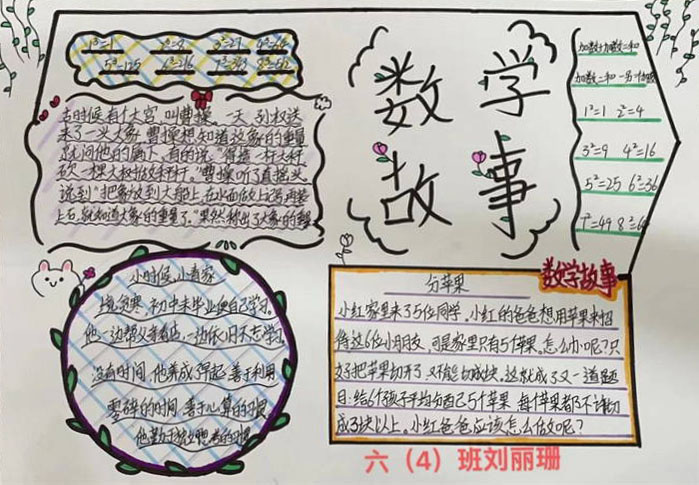 1³=1 2³=8 3³=27 4³=64
5³=125 6³=216 7³=343
古时候有个大官,叫曹操,一天,孙权送
来了一头大象,曹操想知道这象的重量
就问他的属下,有的说:"得造一杆大秤
砍一棵大树做秤杆。"曹操听了直摇头
说到"把象放到大船上,在水面做上记号再装
上石,就知道大象的重量了。"果然称出了大象的重量
数学
故事
加数+加数=和
加数=和-另一加数
1²=1 2²=4
3²=9 4²=16
5²=25 6²=36
7²=49 8²=64
小时候,小青家
境贫寒,初中未毕业便自己学习。
他一边帮父亲看店,一边依旧不忘学习
没有时间,他养成了早起,善于利用
零碎的时间,善于心算的习惯
数学故事
分苹果
小红家里来了5位同学,小红的爸爸想用苹果来招
待这6位小朋友,可是家里只有5个苹果。怎么办呢?只
好把苹果切开了,又不能切成块。这就成了又一道题
目:给6个孩子平均分自己5个苹果,每个苹果都不许切
成3块以上。小红爸爸应该怎么做呢?
六(4)班刘丽珊